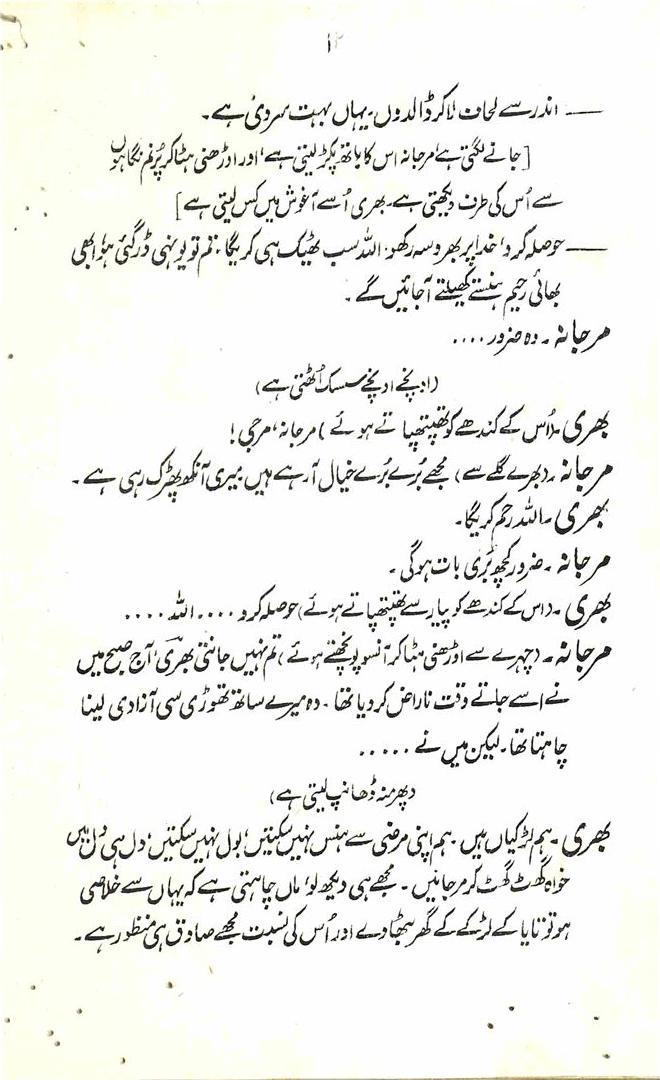 ۱۲
—— اندر سے لحاف لا کر ڈالدوں۔ یہاں بہت سردی ہے۔
[جانے لگتی ہے، مرجانہ اس کا ہاتھ پکڑ لیتی ہے، اور اوڑھنی ہٹا کر پُرنم نگاہوں
سے اُس کی طرف دیکھتی ہے۔ بھری اُسے آغوش میں کس لیتی ہے]
—— حوصلہ کرو، خدا پر بھروسہ رکھو۔ اللہ سب ٹھیک ہی کریگا۔ تم تو یونہی ڈر گئی ہو، ابھی
بھائی رحیم ہنستے کھیلتے آجائیں گے۔
مرجانہ۔ وہ ضرور ....
(اونچے اونچے سسک اُٹھتی ہے)
بھری۔ (اُس کے کندھے کو تھپتھپاتے ہوئے) مرجانہ، مرجی!
مرجانہ۔ (بھرے گلے سے) مجھے بُرے بُرے خیال آرہے ہیں میری آنکھ پھڑک رہی ہے۔
بھری۔ اللہ رحم کریگا۔
مرجانہ۔ ضرور کچھ بُری بات ہوگی۔
بھری۔ (اس کے کندھے کو پیار سے تھپتھپاتے ہوئے) حوصلہ کرو .... اللہ ....
مرجانہ۔ (چہرے سے اوڑھنی ہٹا کر آنسو پونچھتے ہوئے) تم نہیں جانتی بھری، آج صبح میں
نے اسے جاتے وقت ناراض کر دیا تھا۔ وہ میرے ساتھ تھوڑی سی آزادی لینا
چاہتا تھا۔ لیکن میں نے .....
(پھر منہ ڈھانپ لیتی ہے)
بھری۔ ہم لڑکیاں ہیں۔ ہم اپنی مرضی سے ہنس نہیں سکتیں، بول نہیں سکتیں، دل ہی دل میں
خواہ گھٹ گھٹ کر مرجائیں۔ مجھے ہی دیکھ لو، ماں چاہتی ہے کہ یہاں سے خلاصی
ہو تو تایا کے لڑکے کے گھر بٹھا دے اور اُس کی نسبت مجھے صادق ہی منظور ہے۔